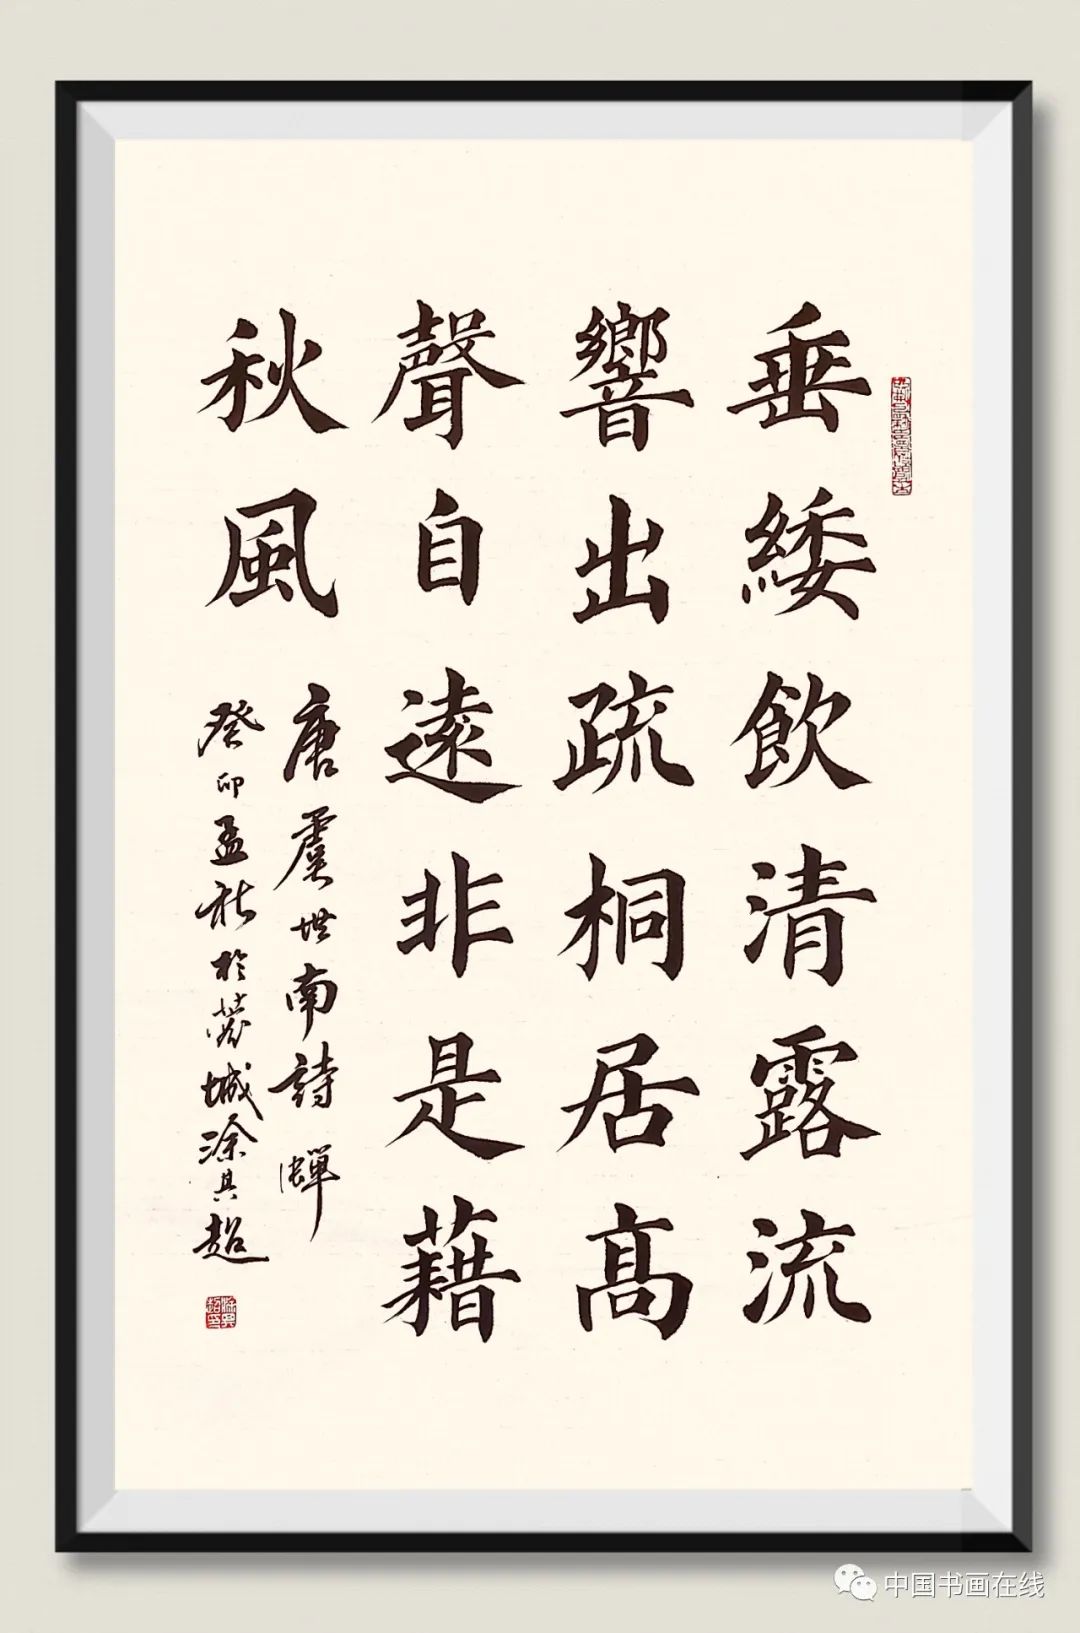 垂緌飲清露流
響出疏桐居高
聲自遠非是藉
秋風
唐虞世南詩 蟬
癸卯孟秋於蓉城涂其超
中国书画在线